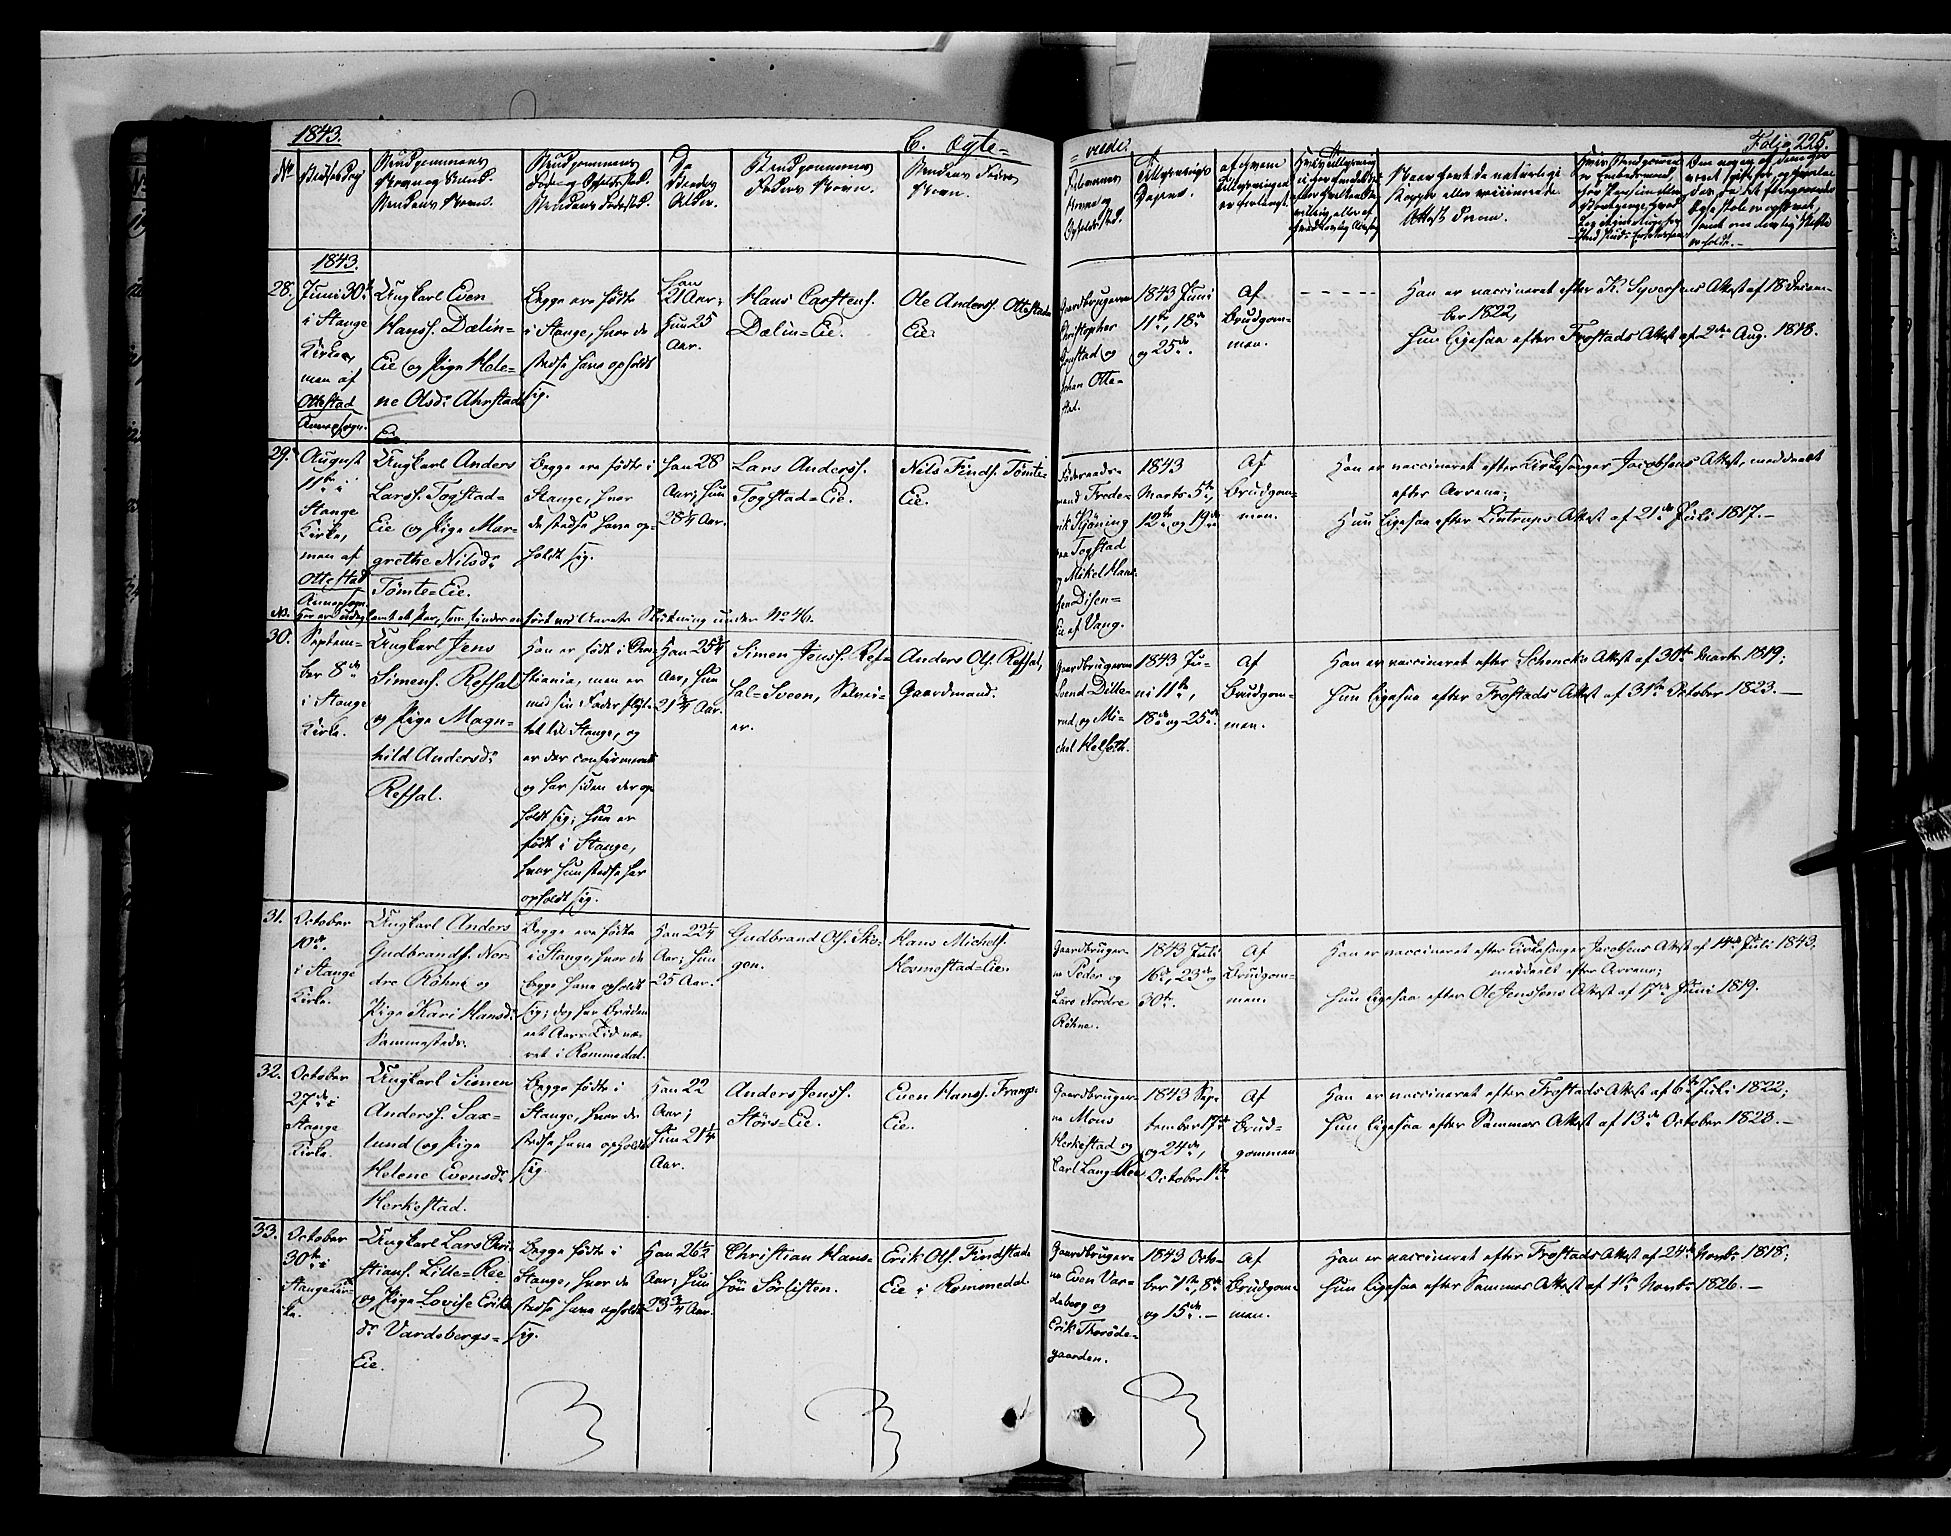 1843.
C. Ægte=
=viede.
Folio 225.
No
Vielses Dag
Brudgommens
Fader og Opholdssted.
Brudens Fødested.
Alder.
Brudgommens
Faders Navn.
Brudens Faders
Navn.
Forlovernes
Navne og
Opholdssted.
Tillysnings
Dagene.
af hvem
Tillysningen
er forlangt.
Naar havt de naturlige
Kopper eller vaccinerede
Attest derom.
1843.
28.
Juni 30te
i Stange
Kirke,
men af
Ottestad
Annexsogn.
Ungkarl Even
Hanss. Dælin=
Eie og Pige Hele=
ne Olsdr Ahrstad
Eie
Begge ere fødte
i Stange, hvor de
stedse have opholdt
sig.
Han
21 Aar;
Hun 25
Aar.
Hans Carstens.
Dælin=Eie.
Ole Anderss. Ottestad
Eie.
Gaardbrugerne
Christopher
og
Johan Otte=
stad.
1843 Juni
11te, 18de
og 25de.
Af
Brudgom=
men.
Han er vaccineret efter K. Syversens Attest af 18 Decem=
ber 1822,
Hun ligesaa efter Frostads Attest af 2den Aug. 1818.
29.
August
11te i
Stange
Kirke,
men af
Ottestad
Annexsogn
Ungkarl Anders
Larss. Togstad=
Eie og Pige Mar=
grethe Nilsdr
Tømte=Eie.
Begge ere fødte i
Stange, hvor
de stedse have op=
holdt sig.
Han 28
Aar; Hun
28¼ Aar.
Lars Anderss.
Togstad=Eie.
Nils Findss. Tømte=
Eie.
Føderaads=
mand Frede=
rik Kjöning
Togstad
og Mikel Hans=
sen Disen=
Eie af Vang.
1843
Marts 5te,
12te og 19de
Af
Brudgom=
men.
Han er vaccineret efter Kirkesanger Jacobsens Attest, meddeelt
efter Arrene;
Hun ligesaa efter Lintrups Attest af 21de Juli 1817.—
NB. Her er udeglemt et Par, som findes anført ved Aarets Slutning under No 46.
30.
Septem=
ber 8de
i Stange
Kirke.
Ungkarl Jens
Simenss. Refsal
og Pige Magn=
hild Andersdr
Refsal.
Han er født i Chri
stiania, men er
med sin Fader flyt=
tet til Stange, og
er der confirmeret
og har siden der op
holdt sig; Hun er
født i Stange,
hvor hun stedse har
opholdt sig.
Han 25¾
Aar, Hun
21¾ Aar.
Simen Jenss. Ref=
sal=Sveen, Selvei=
er.
Anders Ols. Refsal,
Gaardmand.
Gaardbrugerne
og Mi=
chel Helseth.
1843 Ju=
ni 11te,
18de og 25de.
Af
Brudgom=
men.
Han er vaccineret efter Schencks Attest af 30te Marts 1819;
Hun ligesaa efter Frostads Attest af 31te October 1823.—
31.
October
10de
i Stange
Kirke.
Ungkarl Anders
Gudbrandss. Nor=
dre Röhne og
Pige Kari Hansdr
Sammesteds.
Begge ere fødte
i Stange, hvor de
begge have opholdt
sig; dog har Bruden
eet Aars Tid væ=
ret i Rommedal.
Han 22¼
Aar; Hun
25 Aar.
Gudbrand Ols. Sko=
gen.
Hans Michelss.
Hosmestad=Eie.
Gaardbruger=
ne Peder og
Lars Nordre
Röhne.
1843 Juli
16de, 23de og
30te.
Af
Brudgom=
men.
Han er vaccineret efter Kirkesanger Jacobsens Attest af 14de Juli 1843,
meddeelt efter Arrene;
Hun ligesaa efter Ole Jenssens Attest af 17de Juni 1819.
32.
October
27de i
Stange
Kirke.
Ungkarl Simen
Anderss. Sax=
lund og Pige
Helene Evensdr
Herkestad.
Begge fødte i
Stange, hvor de
stedse have opholdt
sig.
Han 22
Aar;
Hun 21¼
Aar.
Anders Jenss.
Störs=Eie.
Even Hanss. Frangs=
Eie.
Gaardbruger=
ne Mons
Herkestad og
Carl Lang=Ree
1843 Sep=
tember 17de
og 24de,
October 1te.
Af
Brud=
gommen
Han er vaccineret efter Frostads Attest af 6te Juli 1822;
Hun ligesaa efter Sammes Attest af 13de October 1823.—
33.
October
30te i
Stange Kir=
ke.
Ungkarl Lars Chri=
stianss. Lille=Ree
og Pige Lovise Eriks
dr Vardebergs=
Eie.
Begge fødte i
Stange, hvor de
stedse have opholdt
sig.
Han 26½
Aar; Hun
23¾ Aar.
Christian Hans=
Sörlisten.
Erik Ols. Findstads
Eie i Rommedal.
Gaardbruger=
ne Even Var=
deberg og
Erik Thoröde=
gaarden.
1843 Octo=
ber 1te, 8de
og 15de.—
Af
Brudgom=
men.
Han er vaccineret efter Frostads Attest af 24de Novbr 1818;
Hun ligesaa efter Sammes Attest af 1te Novbr 1826.—